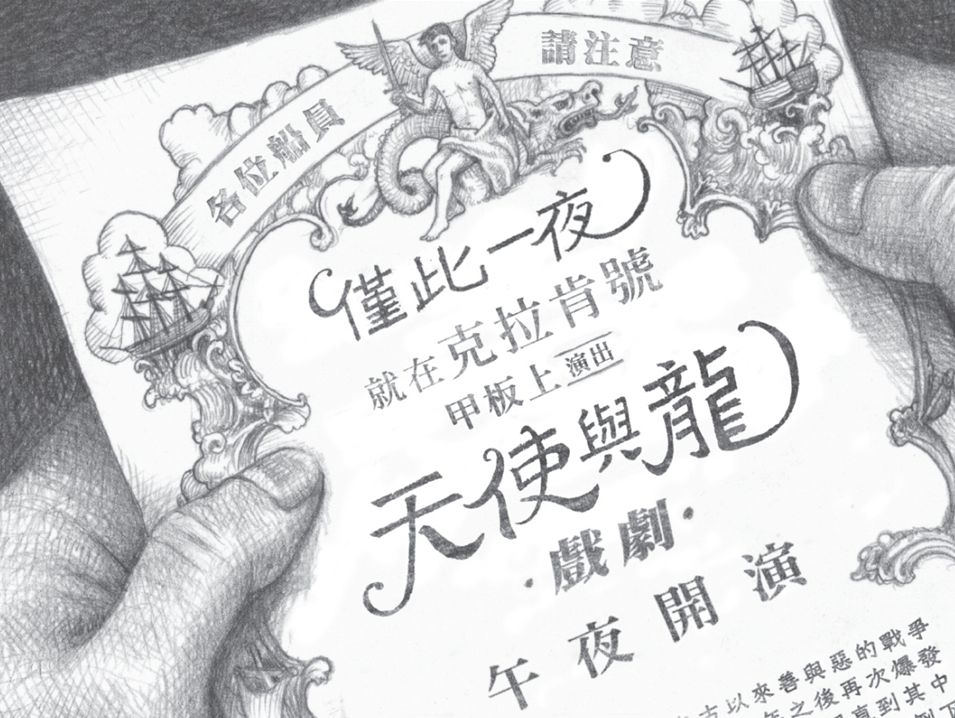 各位船員
請注意
僅此一夜
就在克拉肯號
甲板上演出
天使與龍
·戲劇·
午夜開演
古以來善與惡的戰爭
之後再次爆發
直到其中
倒下